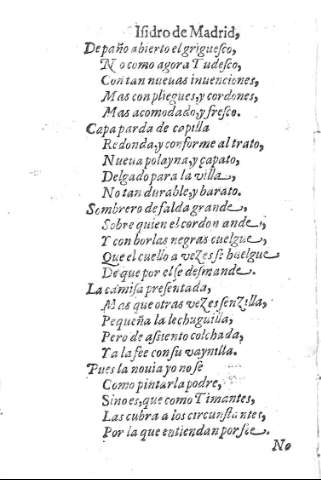 Isidro de Madrid,
De paño abierto el griguesco,
No como agora Tudesco,
Con tan nueuas inuenciones,
Mas con pliegues, y cordones,
Mas acomodado, y fresco.
Capa parda de capilla
Redonda, y conforme al trato,
Nueua polayna, y çapato,
Delgado para la villa,
No tan durable, y barato.
Sombrero de falda grande,
Sobre quien el cordon ande,
Y con borlas negras cuelgue,
Que el cuello a vezes se huelgue
De que por el se desmande.
La camisa presentada,
Mas que otras vezes senzilla,
Pequeña la lechuguilla,
Pero de assiento colchada,
Y a la fee con su vaynilla.
Pues la nouia yo no se
Como pintarla podre,
Sino es, que como Timantes,
Las cubra a los circunstantes,
Por la que entiendan por fee.
No